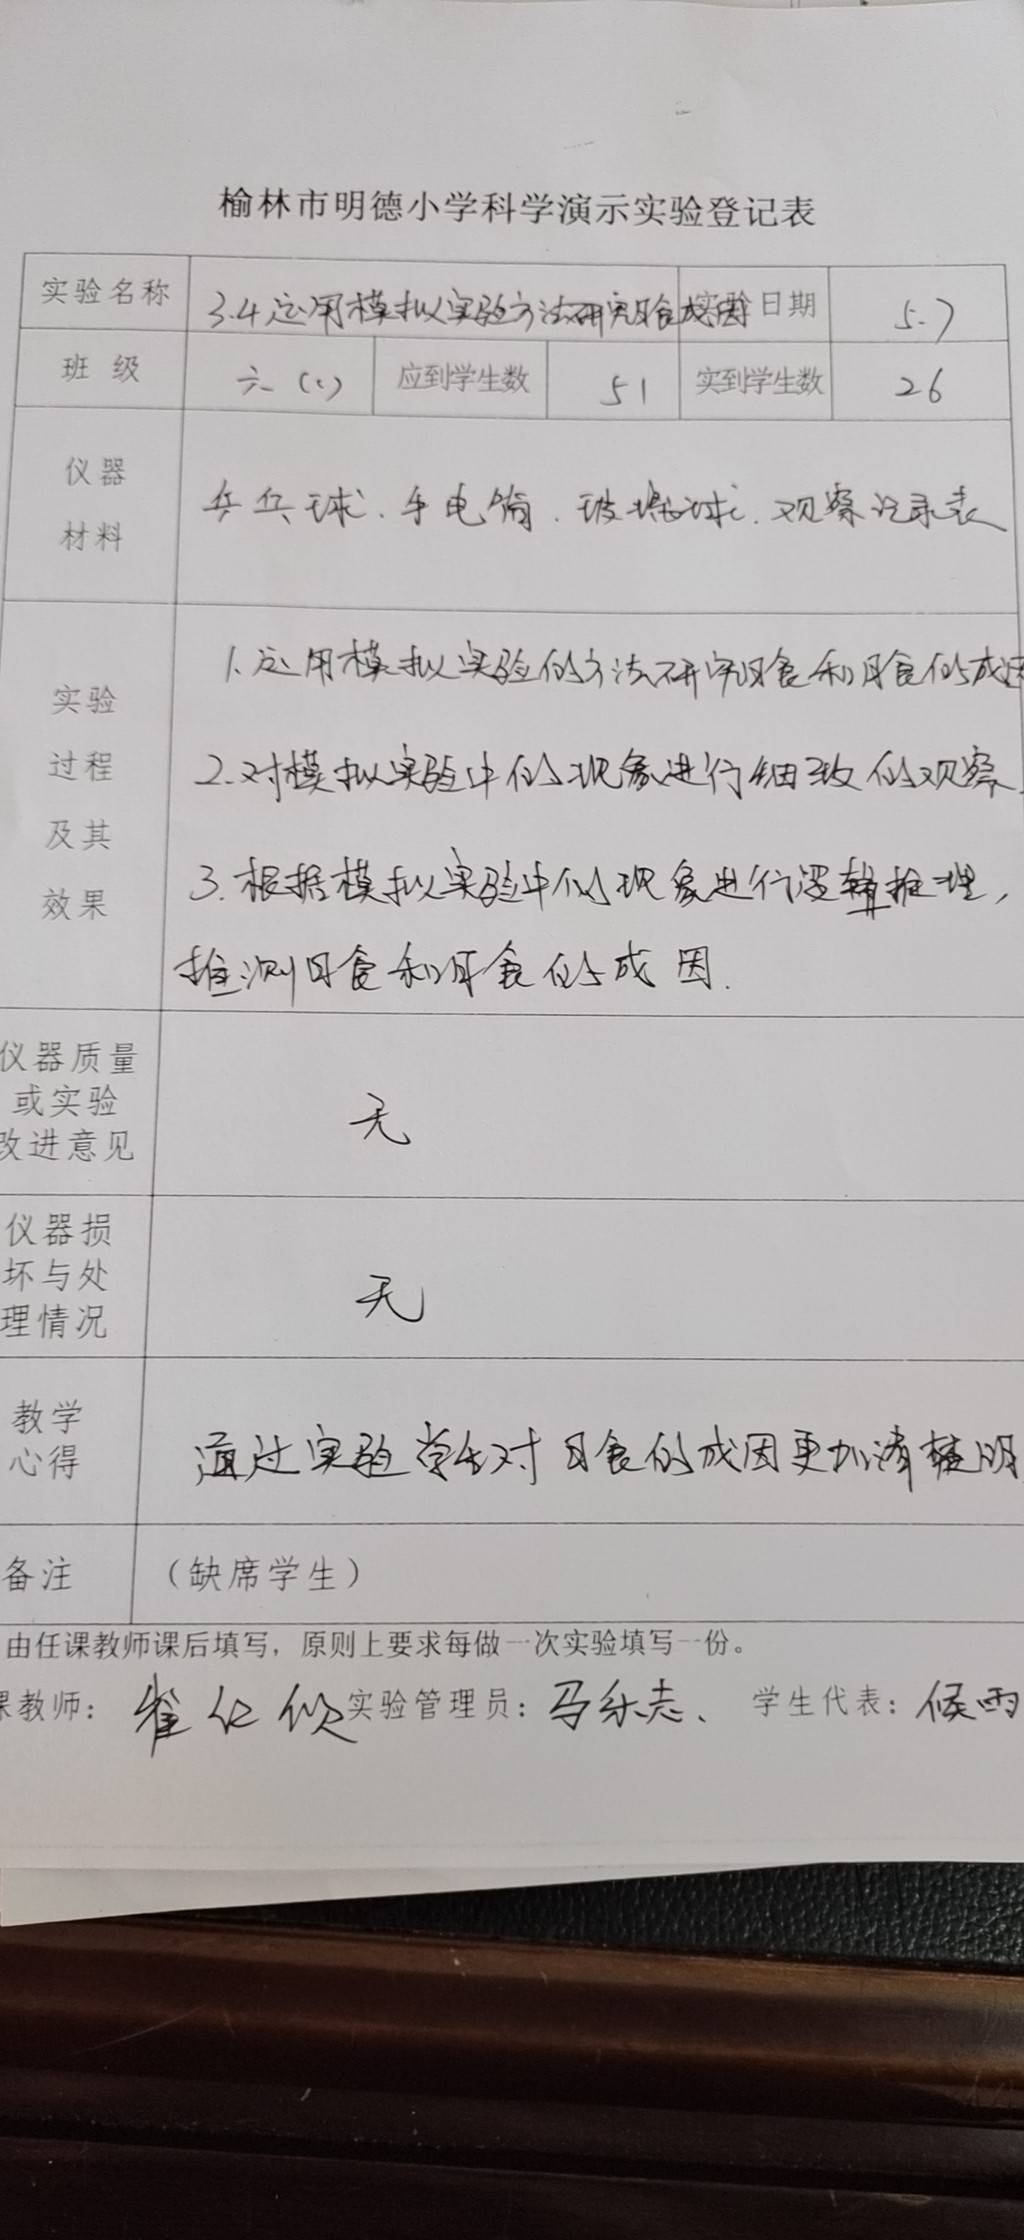 榆林市明德小学科学演示实验登记表
实验名称 3.4运用模拟实验方法研究日食成因 实验日期 5.7
班 级 六 应到学生数 51 实到学生数 26
仪器
材料
乒乓球、手电筒、玻璃球、观察记录表
实验
过程
及其
效果
1.运用模拟实验的方法研究日食和月食的成因
2.对模拟实验中的现象进行细致的观察
3.根据模拟实验中的现象进行逻辑推理,
推测日食和月食的成因.
仪器质量
或实验
改进意见
无
仪器损
坏与处
理情况
无
教学
心得
通过实验学生对日食的成因更加清楚明
备注 （缺席学生）
由任课教师课后填写，原则上要求每做一次实验填写一份。
课教师： 实验管理员：马乐志、 学生代表：候雨